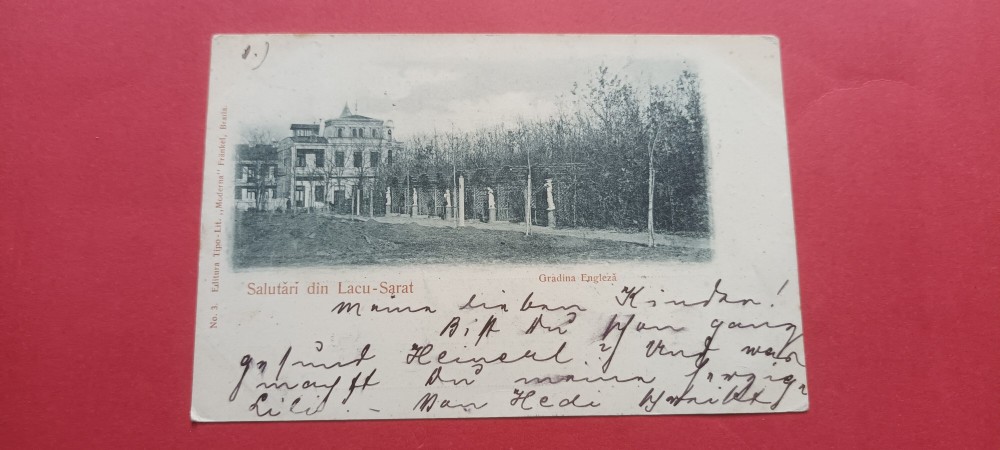 1.)
No. 3. Editura Tipo-Lit. „Moderna" Fränkel, Braila.
Salutări din Lacu-Sarat
Grădina Engleză
Meine lieben Kinder!
Bist Du schon ganz
gesund Heinerl? Und was
machst Du meine herzige
Lili! - Von Hedi schreibt